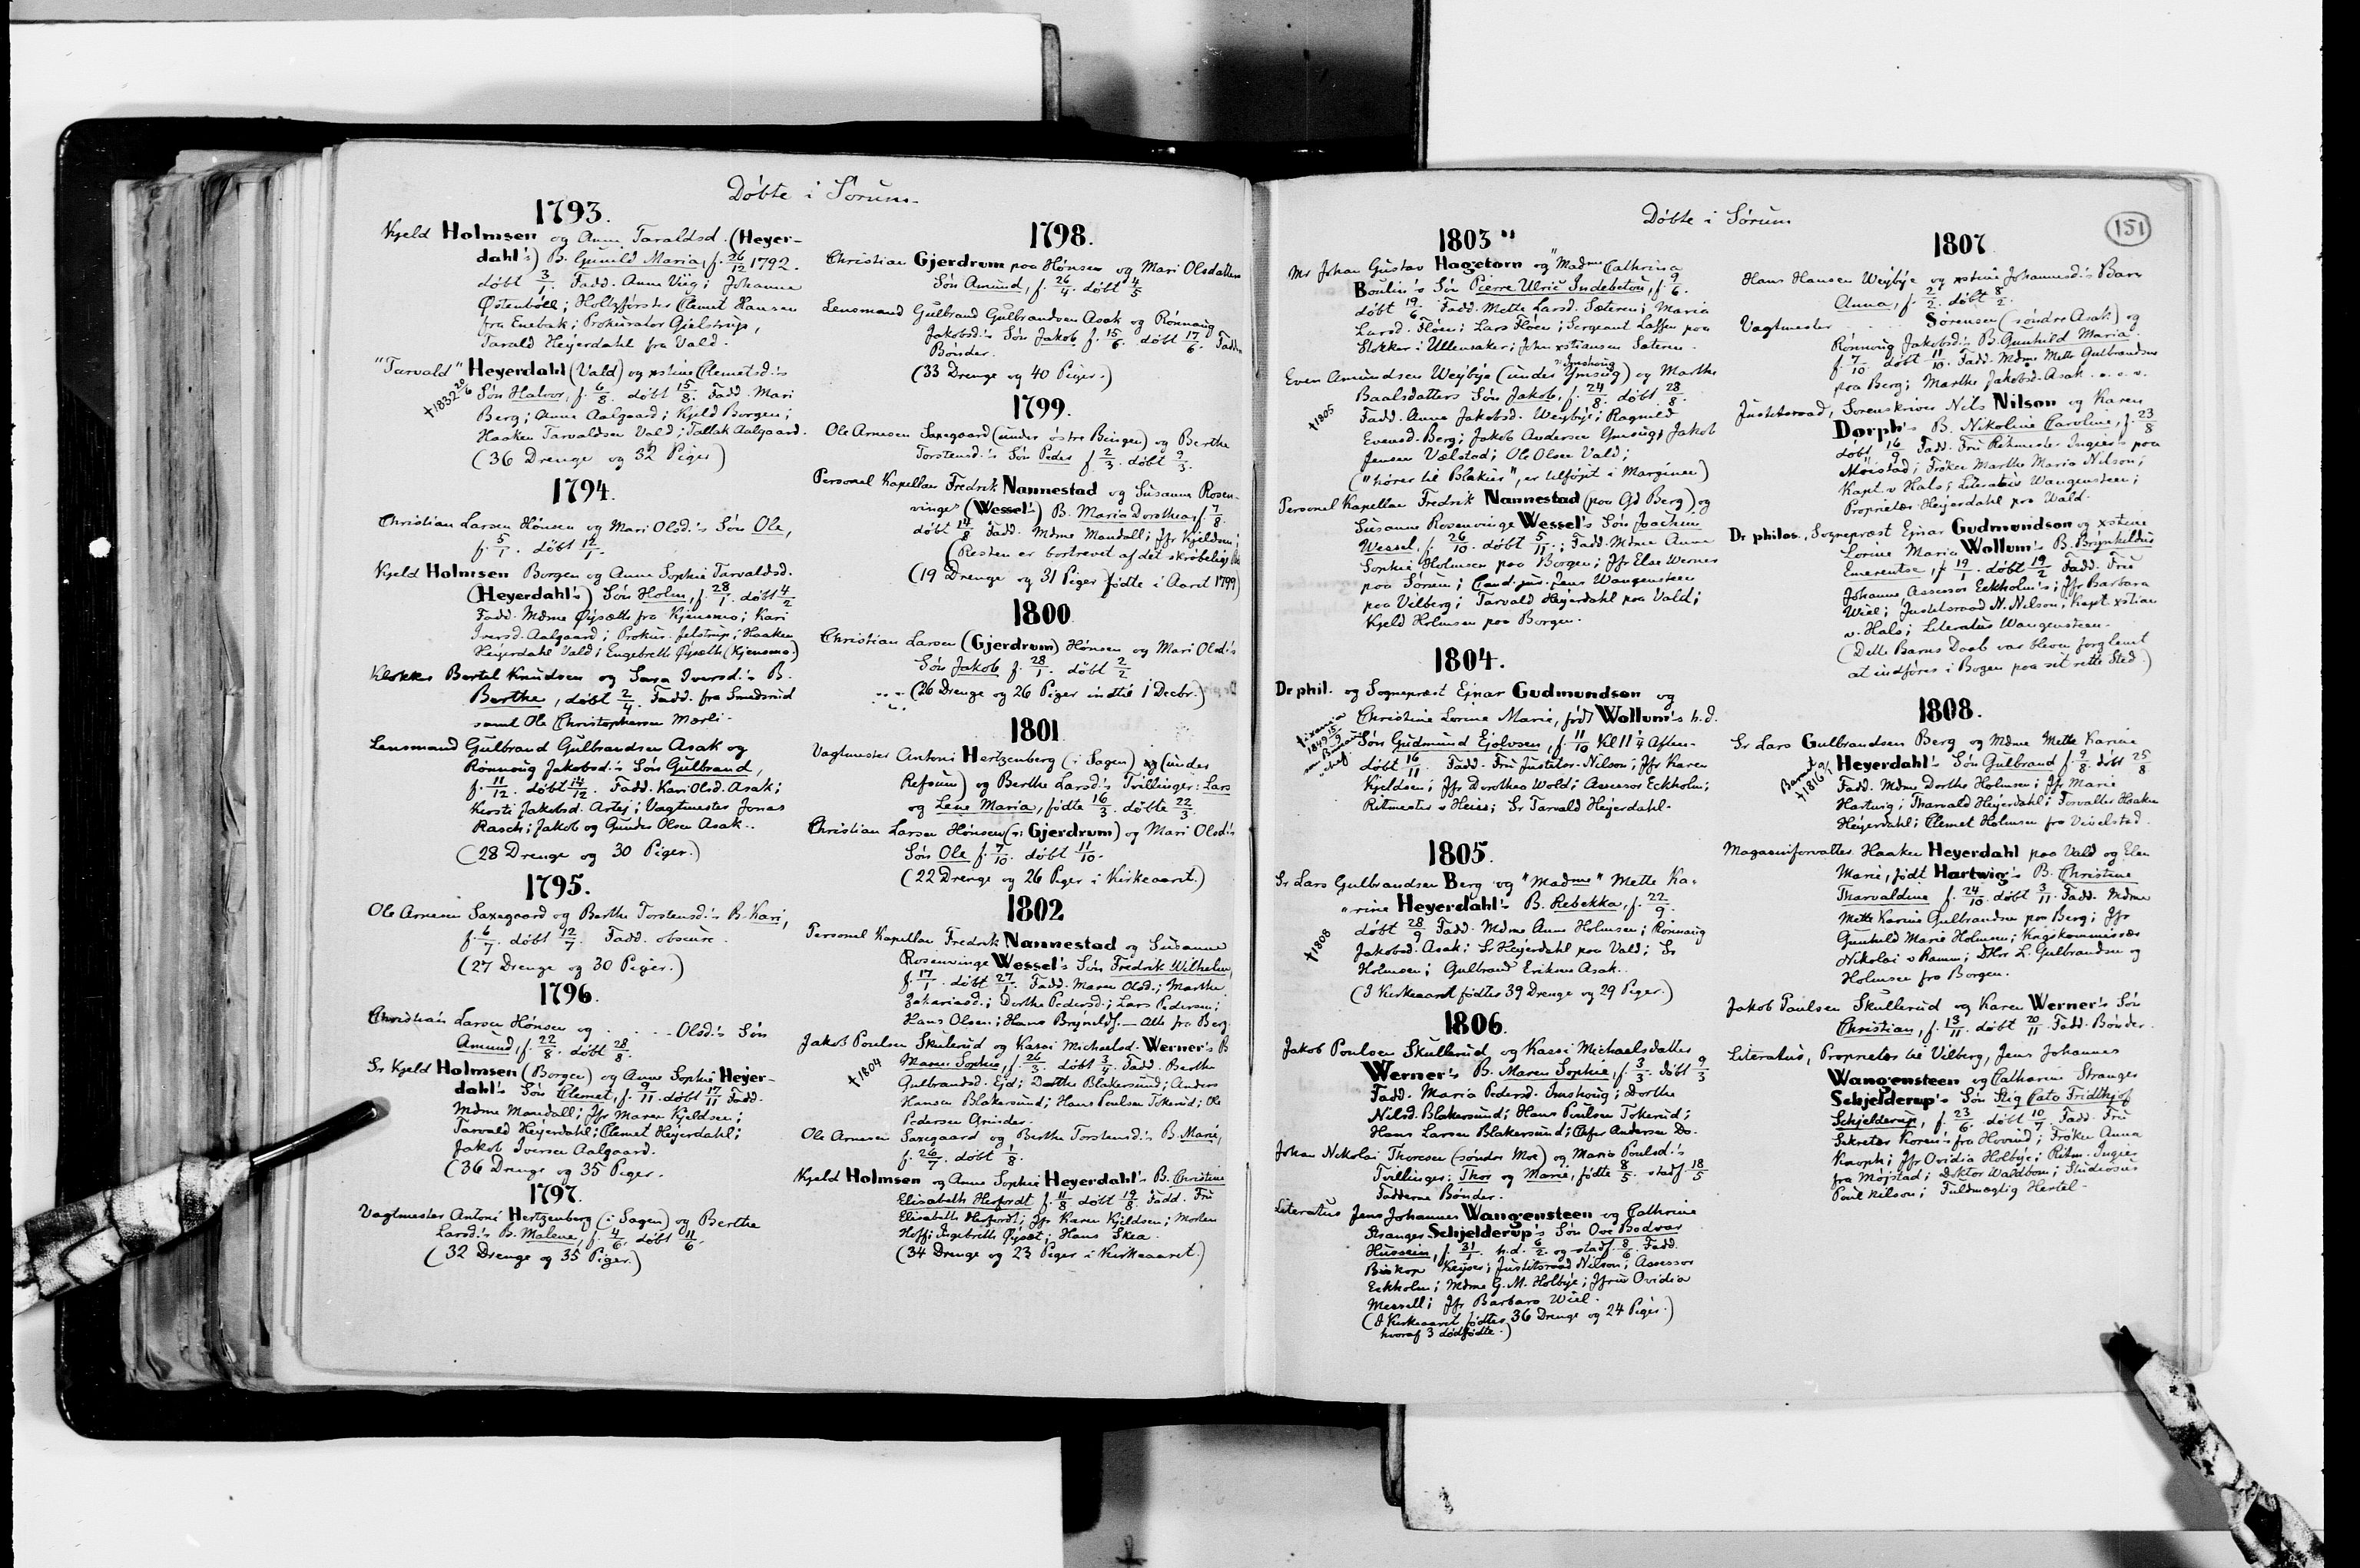 Døbte i Sørum
1793.
Kjeld Holmsen og Anne Taraldsd. (Heyer-
dahl's) B. Gunild Maria, f. 26/12 1792.
døbt 3/1. Fadd. Anne Viig; Johanne
Østenbøll; Holtzførster Clemet Hansen
fra Enebak; Prokurator Gjelstrup,
Tarald Heyerdahl fra Vald.
"Tarvald" Heyerdahl (Vald) og xstine Clemetsd.'s
†1832 20/6 Søn Halvor, f. 6/8. døbt 15/8. Fadd. Mari
Berg; Anne Aalgaard; Kjeld Borgen;
Haaken Tarvaldsen Vald; Tallak Aalgaard.
(36 Drenge og 32 Piger)
1794.
Christian Larsen Hønsen og Mari Olsd.'s Søn Ole,
f. 5/1. døbt 12/1.
Kjeld Holmsen Borgen og Anne Sophie Tarvaldsd.
(Heyerdahl's) Søn Holm, f. 28/1. døbt 4/2
Fadd. Mdme Øysæth fra Kjensmo; Kari
Iversd. Aalgaard; Prokur. Jelstrup; Haaken
Heyerdahl Vald; Engebreth Øysæth (Kjensmo.)
Klokker Bertel Knudsen og Sara Iversd.'s B.
Berthe, døbt 2/4. Fadd. fra Smedsrud
samt Ole Christophersen Mærli.
Lensmand Gulbrand Gulbrandsen Asak og
Rønnoug Jakobsd.'s Søn Gulbrand,
f. 11/12. døbt 14/12. Fadd. Kari Olsd. Asak;
Kersti Jakobsd. Artej; Vagtmester Jonas
Rasch; Jakob og Gunder Olsen Asak..
(28 Drenge og 30 Piger.)
1795.
Ole Arnesen Saxegaard og Berthe Torstensd.'s B. Kari,
f. 6/7. døbt 12/7. Fadd. obscure.
(27 Drenge og 30 Piger.)
1796.
Christian Larsen Hønsen og . . . . Olsd.'s Søn
Amund, f. 22/8. døbt 28/8.
Sr Kjeld Holmsen (Borgen) og Anne Sophie Heyer-
dahl's Søn Clemet, f. 9/11. døbt 17/11 Fadd.
Mdme Mandall; Jfr Maren Kjeldsen;
Tarvald Heyerdahl; Clemet Heyerdahl;
Jakob Iversen Aalgaard.
(36 Drenge og 35 Piger.
1797.
Vagtmester Antoni Hertzenberg (i Sagen) og Berthe
Larsd.'s B. Malene, f. 4/6. døbt 11/6.
(32 Drenge og 35 Piger.)
1798.
Christian Gjerdrum paa Hønsen og Mari Olsdatters
Søn Amund, f. 26/4. døbt 4/5
Lensmand Gulbrand Gulbrandsen Asak og Rønnaug
Jakobsd.'s Søn Jakob f. 15/6. døbt 17/6. Fadd.
Bønder.
(33 Drenge og 40 Piger.)
1799.
Ole Arnesen Saxegaard (under østre Bingen) og Berthe
Torstensd.'s Søn Peder f. 2/3. døbt 9/3.
Personel Kapellan Fredrik Nannestad og Susanne Rosen-
vinge (Wessel's) B. Maria Dorothea, f. 7/8.
døbt 14/8 Fadd. Mdme Mandall; Jfr Kjeldsen;
(Resten er bortrevet af det skrøbelige
(19 Drenge og 31 Piger fødte i Aaret 1799)
1800
Christian Larsen (Gjerdrum) Hønsen og Mari Olsd.'s
Søn Jakob f. 28/1. døbt 2/2
(26 Drenge og 26 Piger indtil 1 Decbr.)
1801
Vagtmester Antoni Hertzenberg (i Sagen) (under
Refsum) og Berthe Larsd.'s Tvillinger: Lars
og Lene Maria, fødte 16/3. døbte 22/3.
Christian Larsen Hønsen (: Gjerdrum) og Mari Olsd.'s
Søn Ole f. 7/10. døbt 11/10.
(22 Drenge og 26 Piger i Kirkeaaret.)
1802
Personel Kapellan Fredrik Nannestad og Susanne
Rosenvinge Wessel's Søn Fredrik Wilhelm,
f. 17/1. døbt 27/1. Fadd. Maren Olsd.; Marthe
Zakariasd.; Dorthe Pedersd.; Lars Pedersen;
Hans Olsen; Hans Brynildf. — Alle fra Berg.
Jakob Poulsen Skulerud og Kassi Michaelsd. Werner's B
†1804 Maren Sophie, f. 26/3. døbt 3/4. Fadd. Berthe
Gulbrandsd. Ejd; Dorthe Blakersund; Anders
Hansen Blakersund; Hans Poulsen Tokerud; Ole
Pedersen Grinder.
Ole Arnesen Saxegaard og Berthe Torstensd.'s B. Marie,
f. 26/7. døbt 1/8.
Kjeld Holmsen og Anne Sophie Heyerdahl's B. Christine
Elisabeth Herfordt f. 11/8 døbt 19/8. Fadd. Fru
Elisabeth Herfordt; Jfr Karen Kjeldsen; Morten
Hoff; Ingebreth Øysæt; Hans Skea.
(34 Drenge og 23 Piger i Kirkeaaret.)
Døbte i Sørum
151
1803
Mr Johan Gustav Hagetorn og "Madme Cathrina
Boulin's Søn Pierre Ulric Indebetou, f. 9/6.
døbt 19/6. Fadd. Mette Larsd. Sæteren; Maria
Larsd. Fløen; Lars Fløen; Sergeant Laffen paa
Slokker i Ullensaker; John xstiansen Sæteren.
Even Amundsen Weyby (under Ymsug) og Marthe
: Imshoug
Baalsdatters Søn Jakob, f. 24/8. døbt 28/8.
†1805 Fadd. Anne Jakobsd. Weyby; Ragnild
Evensd. Berg; Jakob Andersen Ymsug; Jakob
Jensen Vølstad; Ole Olsen Vald;
("hører til Blakier", er tilføjet i Marginen)
Personel Kapellan Fredrik Nannestad (paa Gd Berg) og
Susanne Rosenvinge Wessel's Søn Joachim
Wessel, f. 26/10. døbt 5/11.; Fadd. Mdme Anne
Sophie Holmsen paa Borgen; Jfr Else Werner
paa Sørum; Cand. jur. Jens Wangensteen
paa Vilberg; Tarvald Heyerdahl paa Vald;
Kjeld Holmsen paa Borgen.
1804.
Dr phil. og Sognepræst Ejnar Gudmundson og
Christine Lorine Marie, født Wollum's h.d.
Søn Gudmund Ejolvsen, f. 11/10 Kl 11 1/4 Aften.
døbt 16/11. Fadd. Fru Justitsr. Nilson; Jfr Karen
Kjeldsen; Jfr Dorothea Wold; Assessor Eckholm;
Ritmester v Heis; Sr Tarvald Heyerdahl.
1805.
Sr Lars Gulbrandsen Berg og "Madme" Mette Ka-
rine Heyerdahl's B. Rebekka, f. 22/9.
†1808 døbt 28/9 Fadd. Mdme Anne Holmsen; Rønnaug
Jakobsd. Asak; Sr Heyerdahl paa Vald; Sr
Holmsen; Gulbrand Eriksen Asak..
(I Kirkeaaret fødtes 39 Drenge og 29 Piger.)
1806.
Jakob Poulsen Skullerud og Kassi Michaelsdatter
Werner's B. Maren Sophie, f. 3/3. døbt 9/3
Fadd. Maria Pedersd. Imshoug; Dorthe
Nilsd. Blakersund; Hans Poulsen Tokerud;
Hans Larsen Blakersund; Chfer Andersen Do.
Johan Nikolai Thoresen (søndre Moe) og Maria Poulsd.'s
Tvillinger: Thor og Marie, fødte 8/5. stadf 18/5
Fadderne Bønder.
Literatus Jens Johannes Wangensteen og Cathrine
Stranger Schjelderup's Søn Ove Bodvar
Hussein, f. 31/1. h.d. 6/2. og stadf. 8/6. Fadd.
Biskop Keyser; Justitsraad Nilson; Assessor
Eckholm; Mdme G. M. Holbye; Jfru Ovidia
Messell; Jfr Barbara Wiel.
(I Kirkeaaret fødtes 36 Drenge og 24 Piger.)
hvoraf 3 dødfødte.)
1807
Hans Hansen Weyby og xstine Johannesd.'s Barn
Anna, f. 2/2. døbt 8/2.
Vagtmester . . . . Sørensen (søndre Asak) og
Rønnoug Jakobsd.'s B. Gunhild Maria
f. 7/10 døbt 11/10. Fadd. Mdme Mette Gulbrandsen
paa Berg; Marthe Jakobsd. Asak. o. s. v.
Justitsraad, Sorenskriver Nils Nilson og Karen
Dorph's B. Nikoline Caroline, f. 23/8
døbt 16/9 Fadd. Fru Ritmester Ingier's paa
Møistad; Frøken Marthe Maria Nilson;
Kapt. v Hals; Literatus Wangensteen;
Proprietær Heyerdahl paa Vald.
Dr philos., Sognepræst Ejnar Gudmundson og xstine
Lorine Maria Wollum's B. Brynhildur
Emerentse, f. 19/1. døbt 19/2 Fadd. Fru
Johanne Assessor Eckholm's; Jfr Barbara
Wiel; Justitsraad N. Nilson; Kapt xstian
v. Hals; Literatus Wangensteen.
(Dette Barns Daab var bleven forglemt
at indføres i Bogen paa sit rette Sted.)
1808.
Sr Lars Gulbrandsen Berg og Mdme Mette Karine
Heyerdahl's Søn Gulbrand f. 9/8. døbt 25/8
Fadd. Mdme Dorthe Holmsen; Jfr Marie
Hartwig; Tharvald Heyerdahl; Forvalter Haaken
Heyerdahl; Clemet Holmsen fra Vivelstad.
Magasinforvalter Haaken Heyerdahl paa Vald og Elen
Marie, født Hartwig's B. Christine
Tharvaldine f. 24/10. døbt 3/11. Fadd. Mdme
Mette Karine Gulbrandsen paa Berg; Jfr
Gunhild Marie Holmsen; Krigskommissær
Nikolai v Ramm; DHrr L. Gulbrandsen og
Holmsen fra Borgen.
Jakob Paulsen Skullerud og Karen Werner's Søn
Christian, f. 13/11. døbt 20/11. Fadd. Bønder.
Literatus, Proprietær til Vilberg, Jens Johannes
Wangensteen og Catharine Stranger
Schjelderup's Søn Stig Cato Fridthjof
Schjelderup, f. 23/6. døbt 10/7 Fadd. Fru
Sekretær Koren's fra Hovind; Frøken Anna
Knoph; Jfr Ovidia Holbye; Ritm. Ingier
fra Møjstad; Doktor Waldbom; Studiosus
Poul Nilson; Fuldmægtig Hertel.